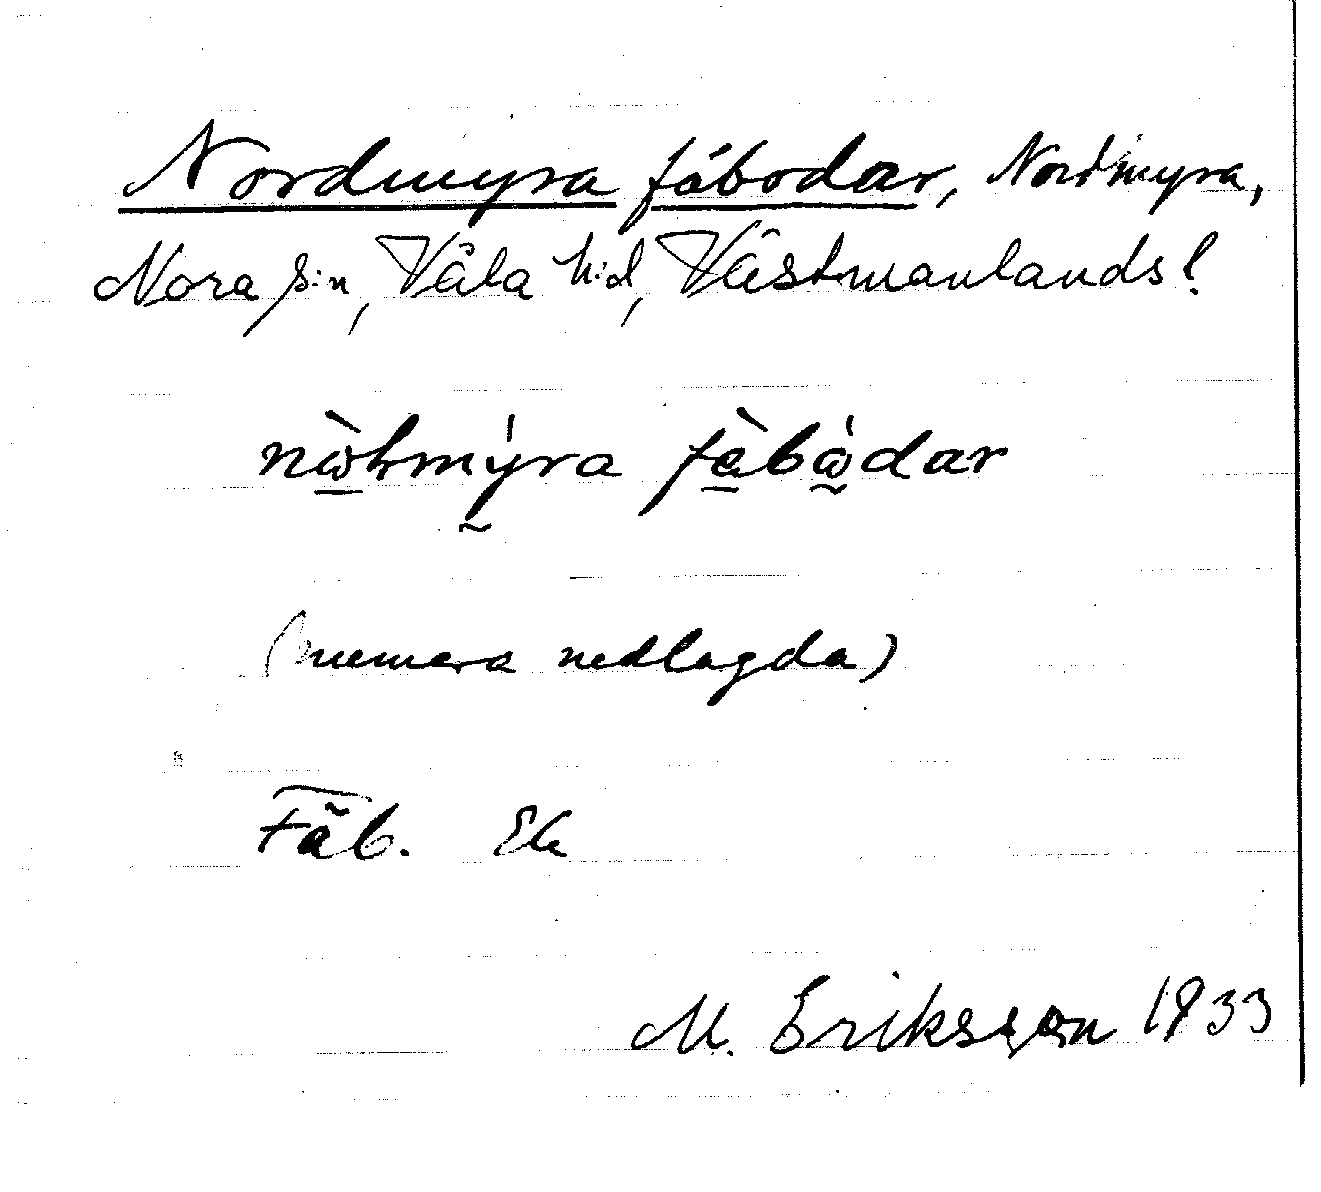 Nordmyra fäbodar, Nordmyra,
Nora s:n, Våla h:d, Västmanlands l.
nὼhmýra fàbὼdar
(numera nedlagda)
Fäb. Ek
M. Eriksson 1933